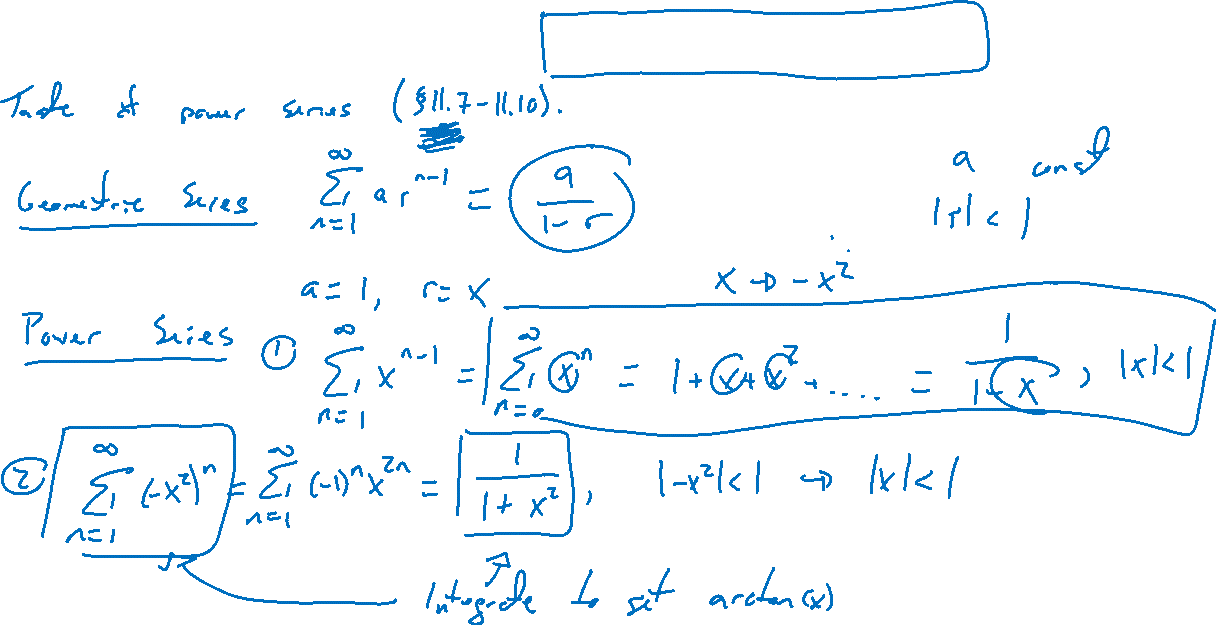 Table of power series (§11.7-11.10).
Geometric Series ∑_{n=1}^{∞} a r^{n-1} = a/(1-r)   a const   |r| < 1
a = 1, r = x   x → -x²
Power Series ① ∑_{n=1}^{∞} x^{n-1} = ∑_{n=0}^{∞} (x)^n = 1 + x + x² + ..... = 1/(1-x), |x| < 1
② ∑_{n=1}^{∞} (-x²)^n = ∑_{n=1}^{∞} (-1)^n x^{2n} = 1/(1+x²), |-x²| < 1 → |x| < 1
Integrate to get arctan(x)